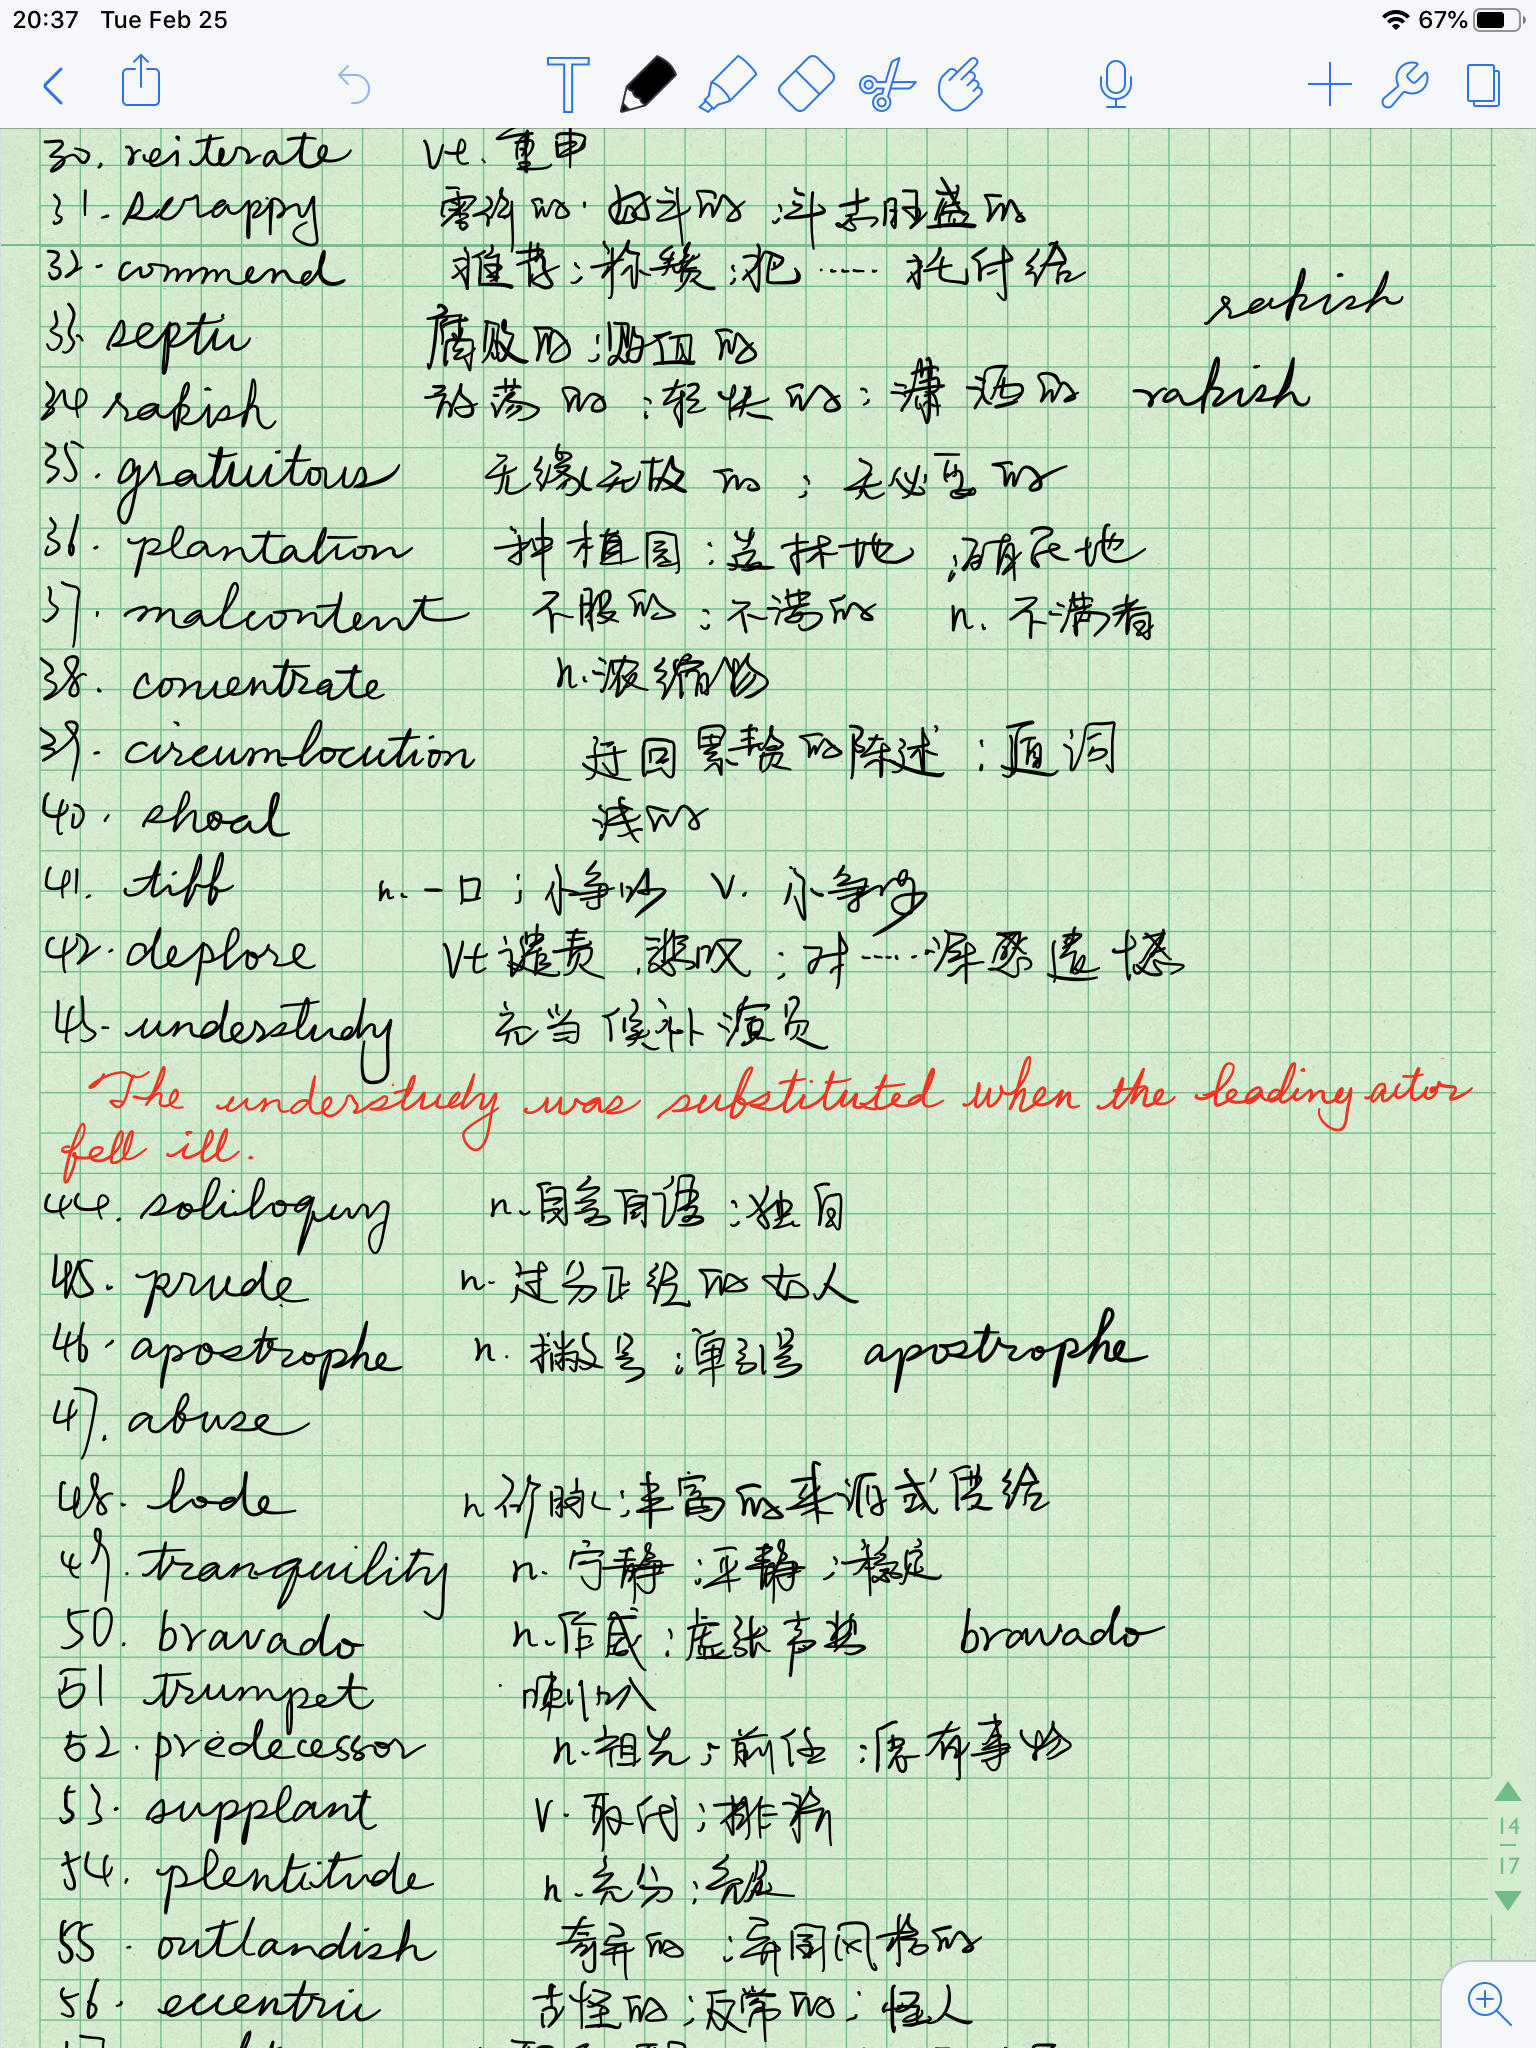 20:37 Tue Feb 25 67%
30. reiterate vt. 重申
31. scrappy 零碎的; 好斗的; 斗志旺盛的
32. commend 推荐; 称赞; 把…… 托付给
rakish
33. septic 腐败的; 败血的
34 rakish 放荡的; 轻快的; 潇洒的 rakish
35. gratuitous 无缘无故的; 无必要的
36. plantation 种植园; 造林地; 殖民地
37. malcontent 不服的; 不满的 n. 不满者
38. concentrate n. 浓缩物
39. circumlocution 迂回累赘的陈述; 遁词
40. shoal 浅的
41. tiff n. 一口; 小争吵 v. 小争吵
42. deplore vt 谴责; 悲叹; 对……深感遗憾
43. understudy 充当候补演员
The understudy was substituted when the leading actor
fell ill.
44. soliloquy n. 自言自语; 独白
45. prude n. 过分正经的女人
46. apostrophe n. 撇号; 单引号 apostrophe
47. abuse
48. lode n 矿脉; 丰富的来源或供给
49. tranquility n. 宁静; 平静; 稳定
50. bravado n. 作威; 虚张声势 bravado
51 trumpet 喇叭
52. predecessor n. 祖先; 前任; 原有事物
53. supplant v. 取代; 排挤
14
17
54. plentitude n. 充分; 充足
55. outlandish 奇异的; 异国风格的
56. eccentric 古怪的; 反常的; 怪人